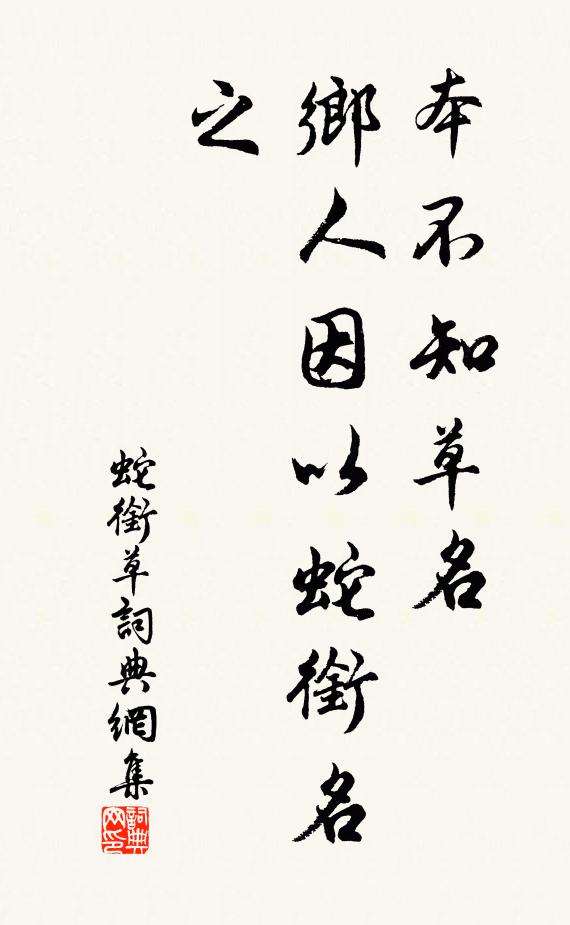 本不知草名
鄉人因以蛇銜名
之
蛇銜草詞典網集
詞典
网印